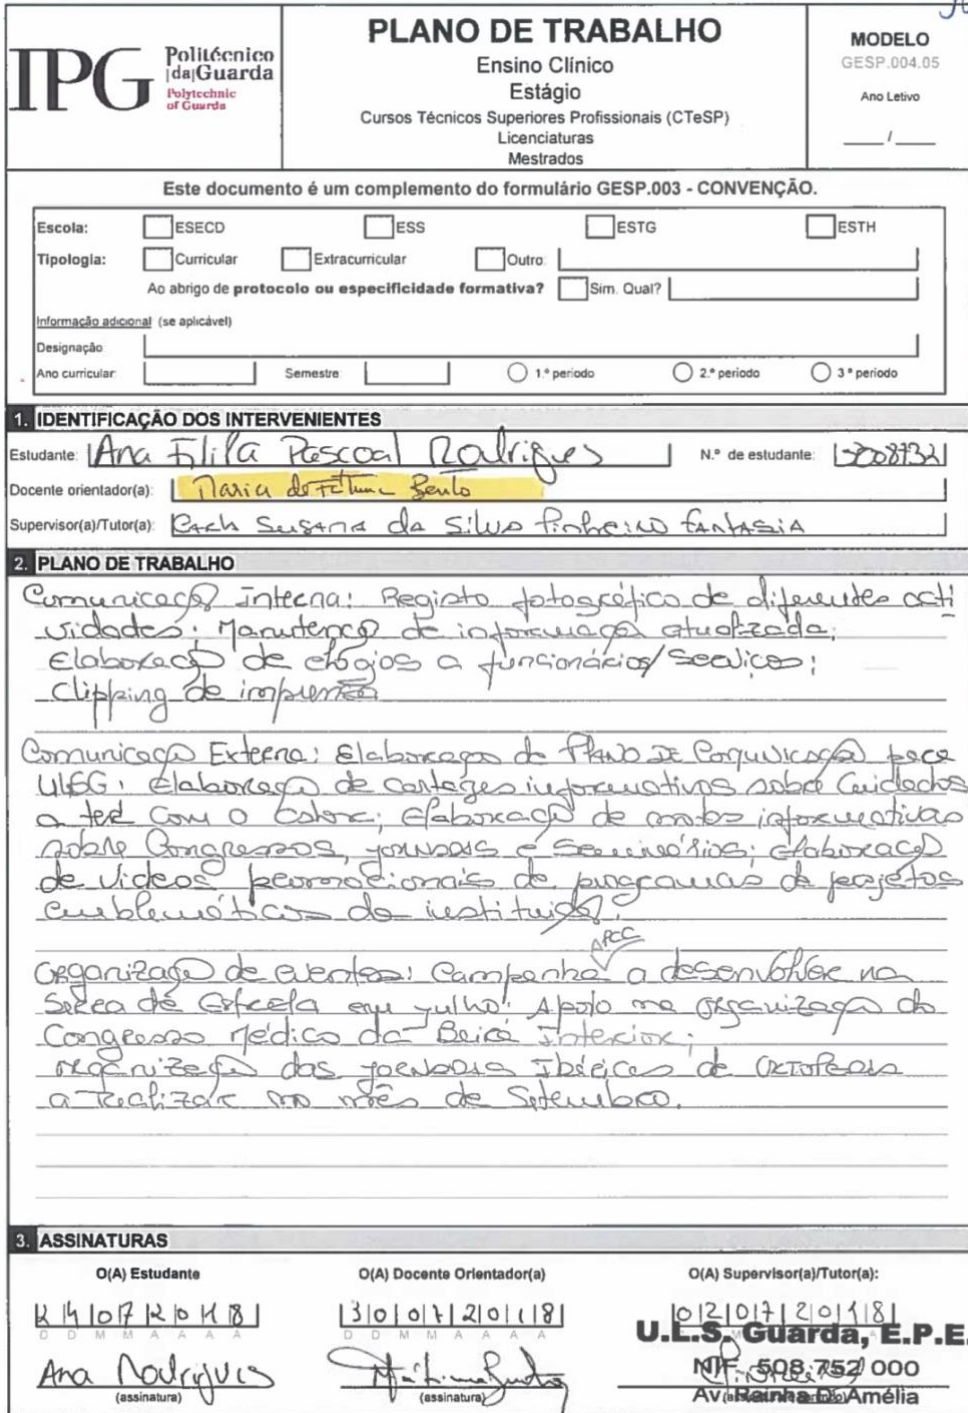 IPG
Politécnico
|da|Guarda
Polytechnic
of Guarda
PLANO DE TRABALHO
Ensino Clínico
Estágio
Cursos Técnicos Superiores Profissionais (CTeSP)
Licenciaturas
Mestrados
MODELO
GESP.004.05
Ano Letivo
____/____
Este documento é um complemento do formulário GESP.003 - CONVENÇÃO.
Escola: ESECD ESS ESTG ESTH
Tipologia: Curricular Extracurricular Outro:
Ao abrigo de protocolo ou especificidade formativa? Sim. Qual?
Informação adicional (se aplicável)
Designação:
Ano curricular: Semestre: 1.º período 2.º período 3.º período
1. IDENTIFICAÇÃO DOS INTERVENIENTES
Estudante: Ana Filipa Pascoal Rodrigues N.º de estudante: 5008732
Docente orientador(a): Maria de Fátima Bento
Supervisor(a)/Tutor(a): Carla Susana da Silva Pinheiro Fantasia
2. PLANO DE TRABALHO
Comunicação Interna: Registo fotográfico de diferentes acti
vidades; Manutenção de informação atualizada;
Elaboração de elogios a funcionários/Serviços;
Clipping de imprensa
Comunicação Externa: Elaboração do Plano de Comunicação para
ULSG; Elaboração de cartazes informativos sobre Cuidados
a ter com o Calor; Elaboração de notas informativas
sobre Congressos, jornadas e Seminários; Elaboração
de vídeos promocionais de programas de projetos
emblemáticos da instituição.
Organização de eventos: Campanha APCC a desenvolver na
Serra da Estrela em julho; Apoio na organização do
Congresso Médico da Beira Interior;
organização das jornadas Ibéricas de Ortopedia
a realizar no mês de Setembro.
3. ASSINATURAS
O(A) Estudante O(A) Docente Orientador(a) O(A) Supervisor(a)/Tutor(a):
24072018 30072018 02072018
D D M M A A A A D D M M A A A A
U.L.S. Guarda, E.P.E.
NIF 508 752 000
Av. Rainha D. Amélia
Ana Rodrigues Fátima Bento
(assinatura) (assinatura)